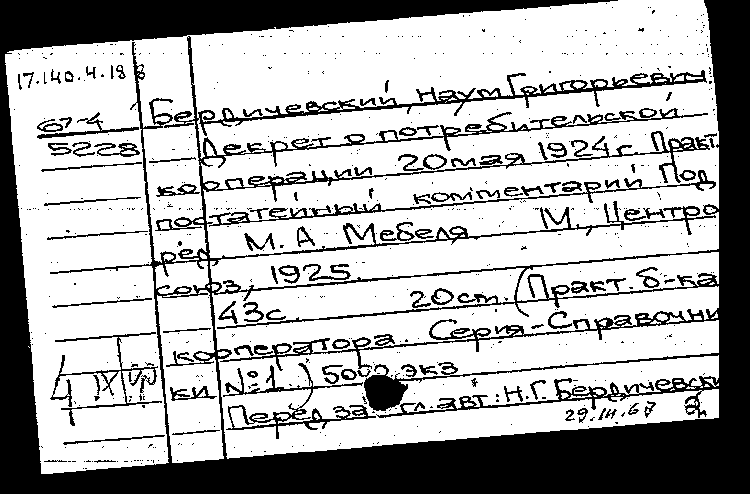 17.140.4.18 8
67-4
5228
Бердичевский, Наум Григорьевич.
Декрет о потребительской
кооперации 20 мая 1924 г. Практ.
постатейный комментарий Под
ред. М. А. Мебеля М., Центро
союз, 1925.
43с. 20 ст. (Практ. б-ка
кооператора. Серия-Справочни
ки №1) 5000 экз
Перед за гл. авт: Н.Г. Бердичевски
29.III.67